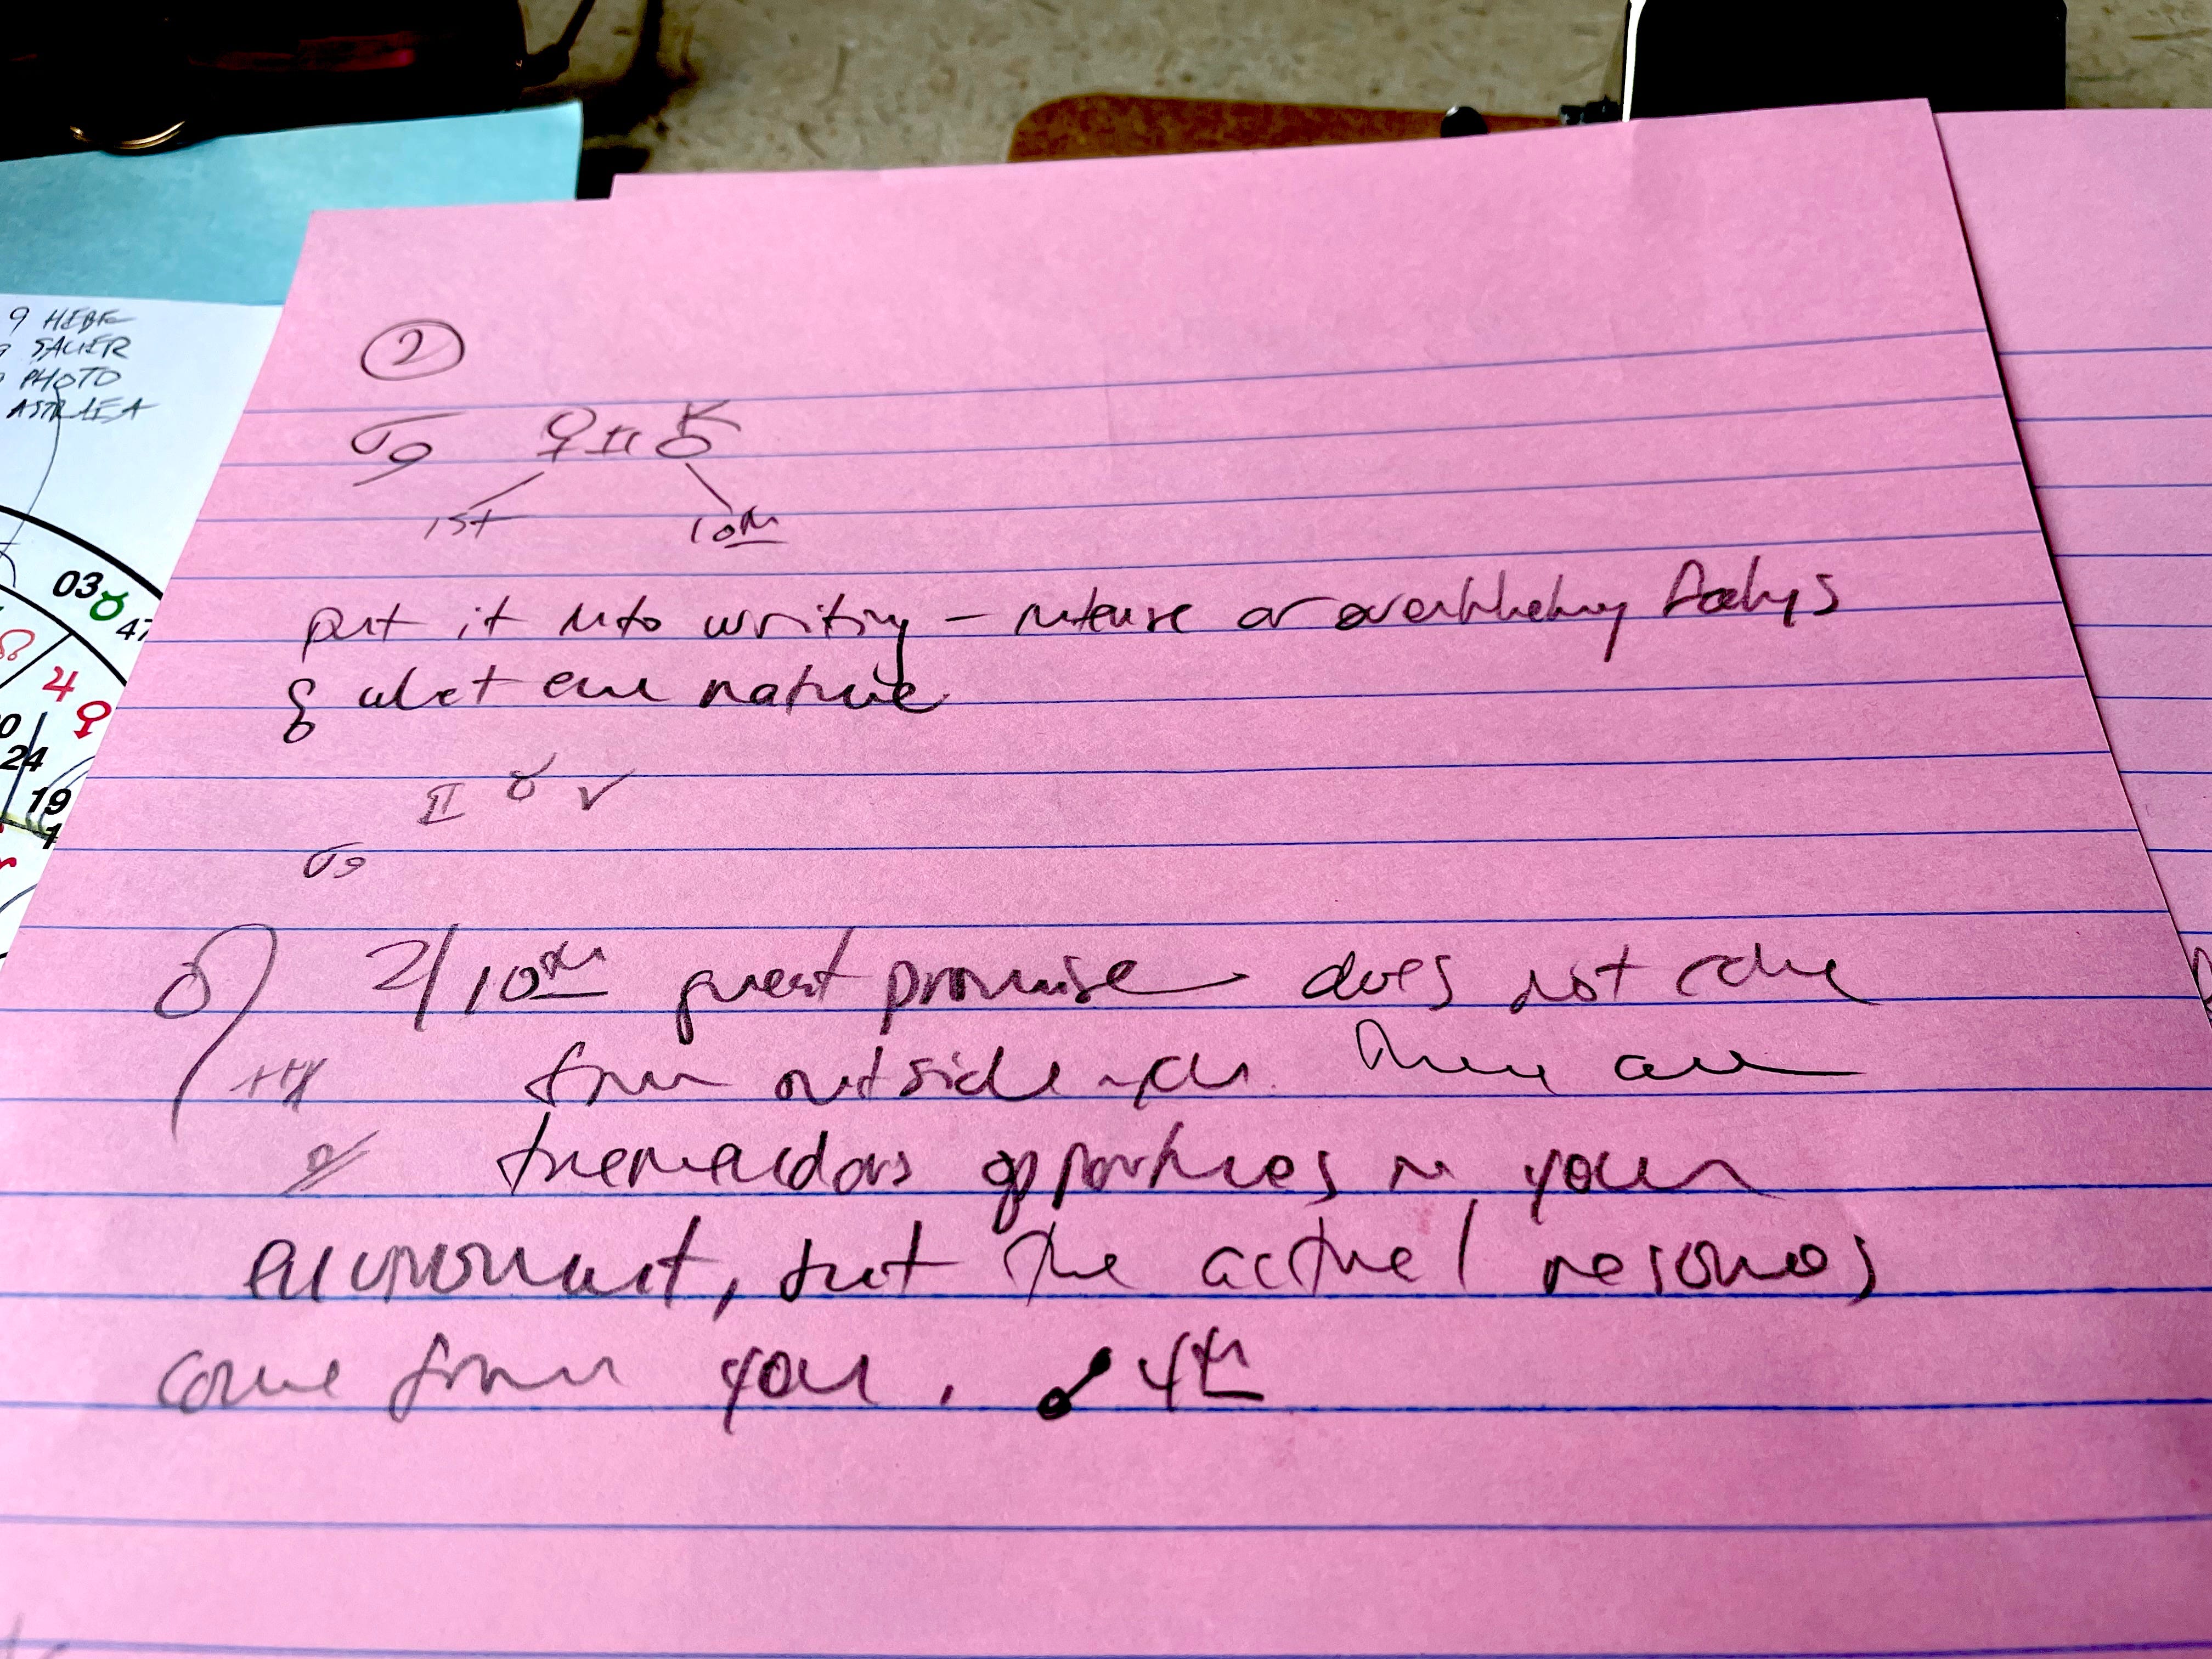 9 HEBE
SAUER
PHOTO
ASTRAEA
03 ♉ 47
♃ ♀
24
19
②
♋ ♀ ♊ ⚷
1st 10th
put it into writing – intense or overwhelming feelings
& what ever nature
♊ ♉ ✓
♋
2/10th great promise does not come
from outside
There are
tremendous opportunities in your
environment, but the actual resources
come from you. 4th